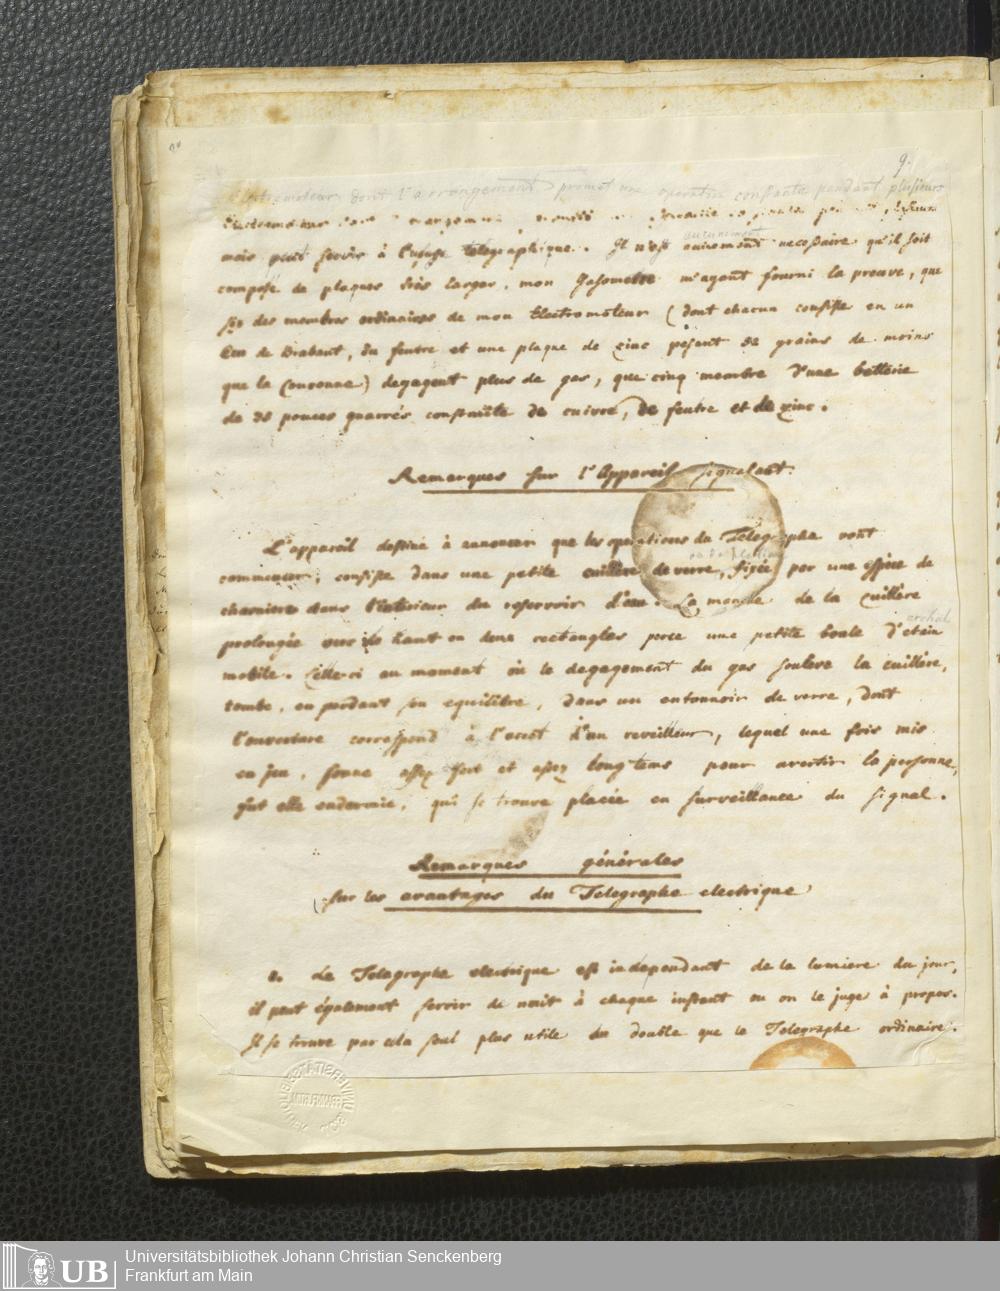 9.
Electromoteur dont l'arrangement promet une operation constante pendant plusieurs
mois peut servir à l'usage telegraphique. Il n'est aucunement necessaire qu'il soit
aucunement
composé de plaques très larges, mon Gasometre m'ayant fourni la preuve, que
six des membres ordinaires de mon Electromoteur (dont chacun consiste en un
Ecu de Brabant, du feutre et une plaque de zinc pesent 52 grains de moins
que la Couronne) degagent plus de gas, que cinq membre d'une batterie
de 38 pouces quarrés construite de cuivre, de feutre et de zinc.
Remarques sur l'Appareil signalant.
L'appareil destiné à annoncer que les operations du Telegraphe vont
commencer, consiste dans une petite cuillère de verre, fixée par une espèce de
charniere dans l'interieur du reservoir d'eau. Le manche de la cuillère
prolongée vers le haut en deux rectangles porte une petite boule d'etain
mobile. Celle-ci au moment où le degagement du gas souleve la cuillère,
tombe, en perdant son equilibre, dans un entonnoir de verre, dont
l'ouverture correspond à l'arret d'un reveilleur, lequel une fois mis
en jeu, sonne assez fort et assez longtems pour avertir la personne,
fut elle endormie, qui se trouve placée en surveillance du signal.
Remarques générales
sur les avantages du Telegraphe electrique
1. Le Telegraphe electrique est independant de la lumiere du jour,
il peut également servir de nuit à chaque instant ou on le juge à propos.
Il se trouve par cela seul plus utile du double que le Telegraphe ordinaire.
UNIVERSITÄTSBIBLIOTHEK
FRANKFURT
UB
Universitätsbibliothek Johann Christian Senckenberg
Frankfurt am Main